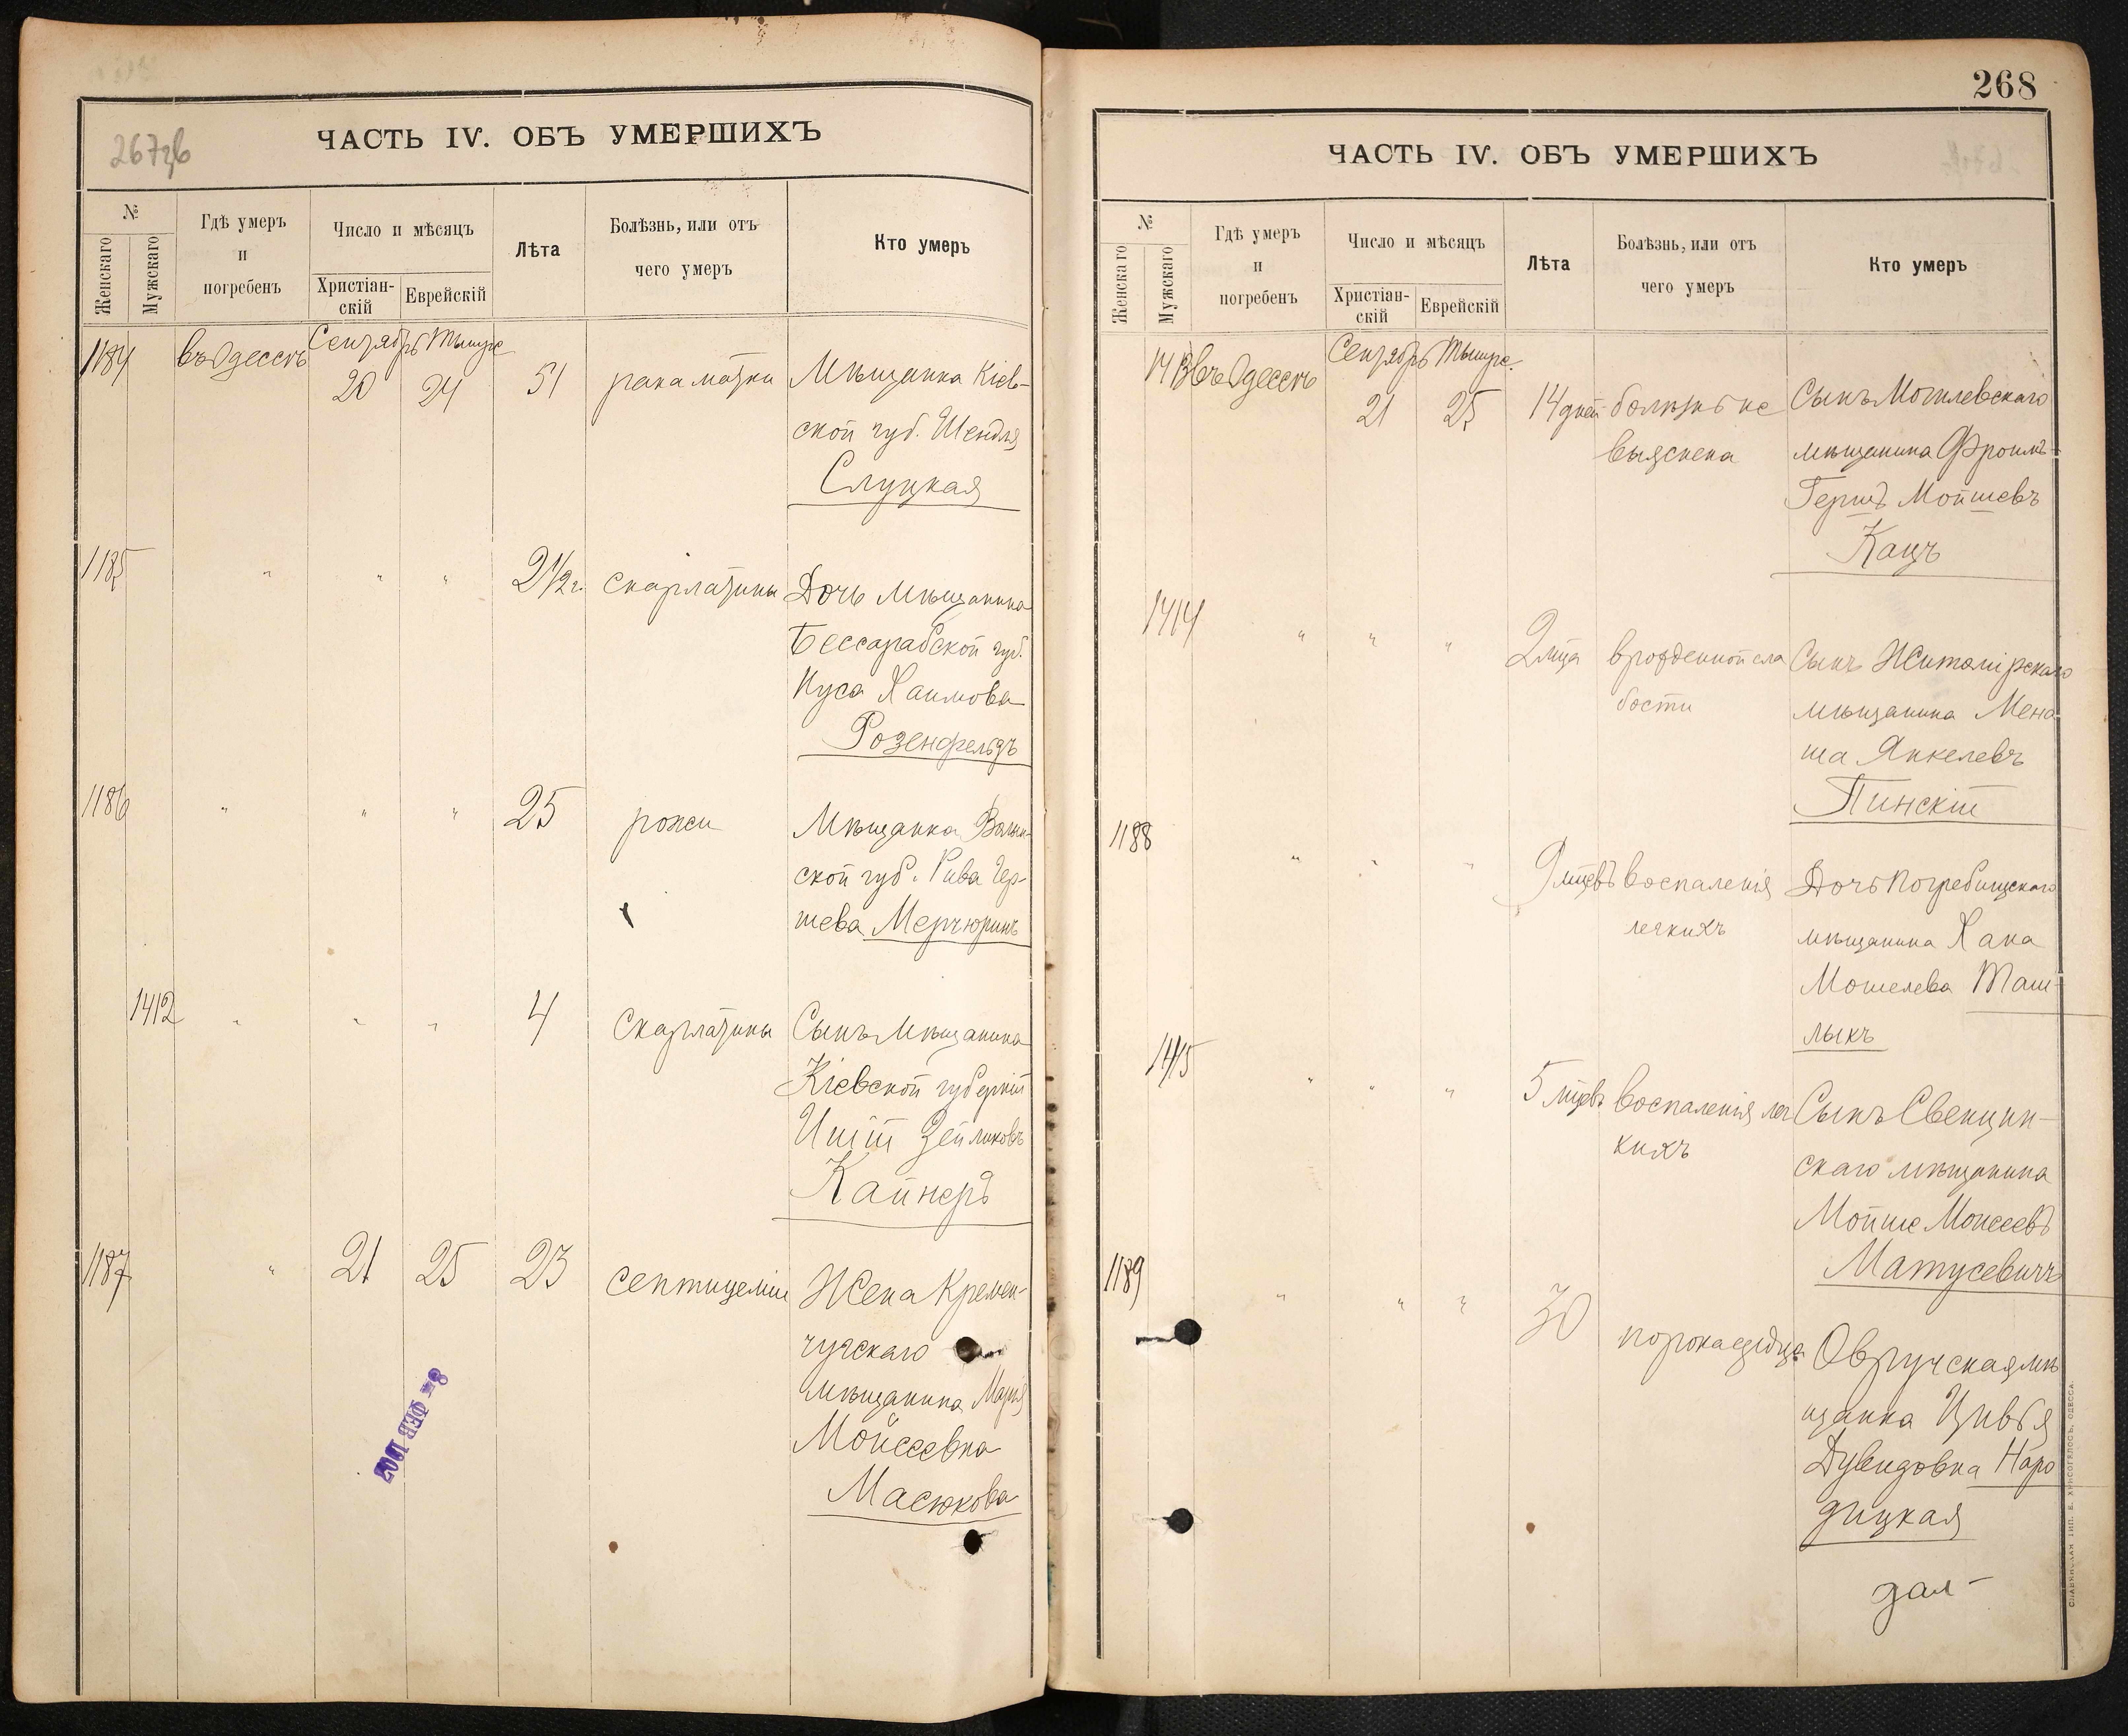 267зв
ЧАСТЬ IV. ОБЪ УМЕРШИХЪ
№
Женскаго
Мужскаго
Гдѣ умеръ
и
погребенъ
Число и мѣсяцъ
Христіан-
скій
Еврейскій
Лѣта
Болѣзнь, или отъ
чего умеръ
Кто умеръ
1184 въ Одессѣ Сентябрь Тышре
20 24 51 рака матки Мѣщанка Кіев-
ской губ. Шендля
Слуцкая
1185 " " " 2 1/2 г. скарлатины Дочь мѣщанина
Бессарабской губ.
Нуса Хаимова
Розенфельдъ
1186 " " " 25 рожи Мѣщанка Волын-
ской губ. Рива Гер-
шева Мерчюринъ
1412 " " " 4 скарлатины Сынъ мѣщанина
Кіевской губерніи
Зейликовъ
Кайнеръ
1187 " 21 25 23 септицеміи Жена Кремен-
чугскаго
мѣщанина Марія
Мойсеевна
Масюкова
8 = ФЕВ 1902
268
ЧАСТЬ IV. ОБЪ УМЕРШИХЪ
№
Женскаго
Мужскаго
Гдѣ умеръ
и
погребенъ
Число и мѣсяцъ
Христіан-
скій
Еврейскій
Лѣта
Болѣзнь, или отъ
чего умеръ
Кто умеръ
1413 въ Одессѣ Сентябрь Тышре.
21 25 14 дней болѣзнь не Сынъ Могилевскаго
выяснена мѣщанина Фроимъ-
Гершъ Мойшевъ
Кацъ
1414 " " " 2 мца врожденной сла Сынъ Житомірскаго
бости мѣщанина Мена
ша Янкелевъ
Пинскій
1188 " " " 9 мцевъ воспаленія Дочь Погребищскаго
легкихъ мѣщанина Хана
Мошелева Таш-
лыкъ
1415 " " " 5 мцевъ воспаленія лег Сынъ Свенцин-
кихъ скаго мѣщанина
Мойше Моисеевъ
Матусевичъ
1189 " " " 30 порока сердца Овручская мѣ
щанка Цивья
Дувидовна Наро
дицкая
дал-
СЛАВЯНСКАЯ ТИП. Е. ХРИСОГЕЛОСЪ, ОДЕССА.